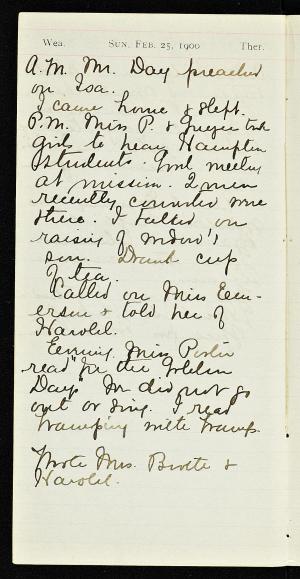 Wea. SUN. FEB. 25, 1900 Ther.
A.M. Mr. Day preached
on Isa.
I came home & slept.
P.M. Miss P. & took
girls to hear Hampton
students. Good meeting
at mission. 2 men
recently converted were
there. I talked on
raising of widow's
son. Drank cup
of tea.
Called on Miss Em-
erson & told her of
Harold.
Evening Miss Porter
read "In the Golden
Days" did not go
out or sing. I read
Tramping with Tramps.
Wrote Mrs. &
Harold.